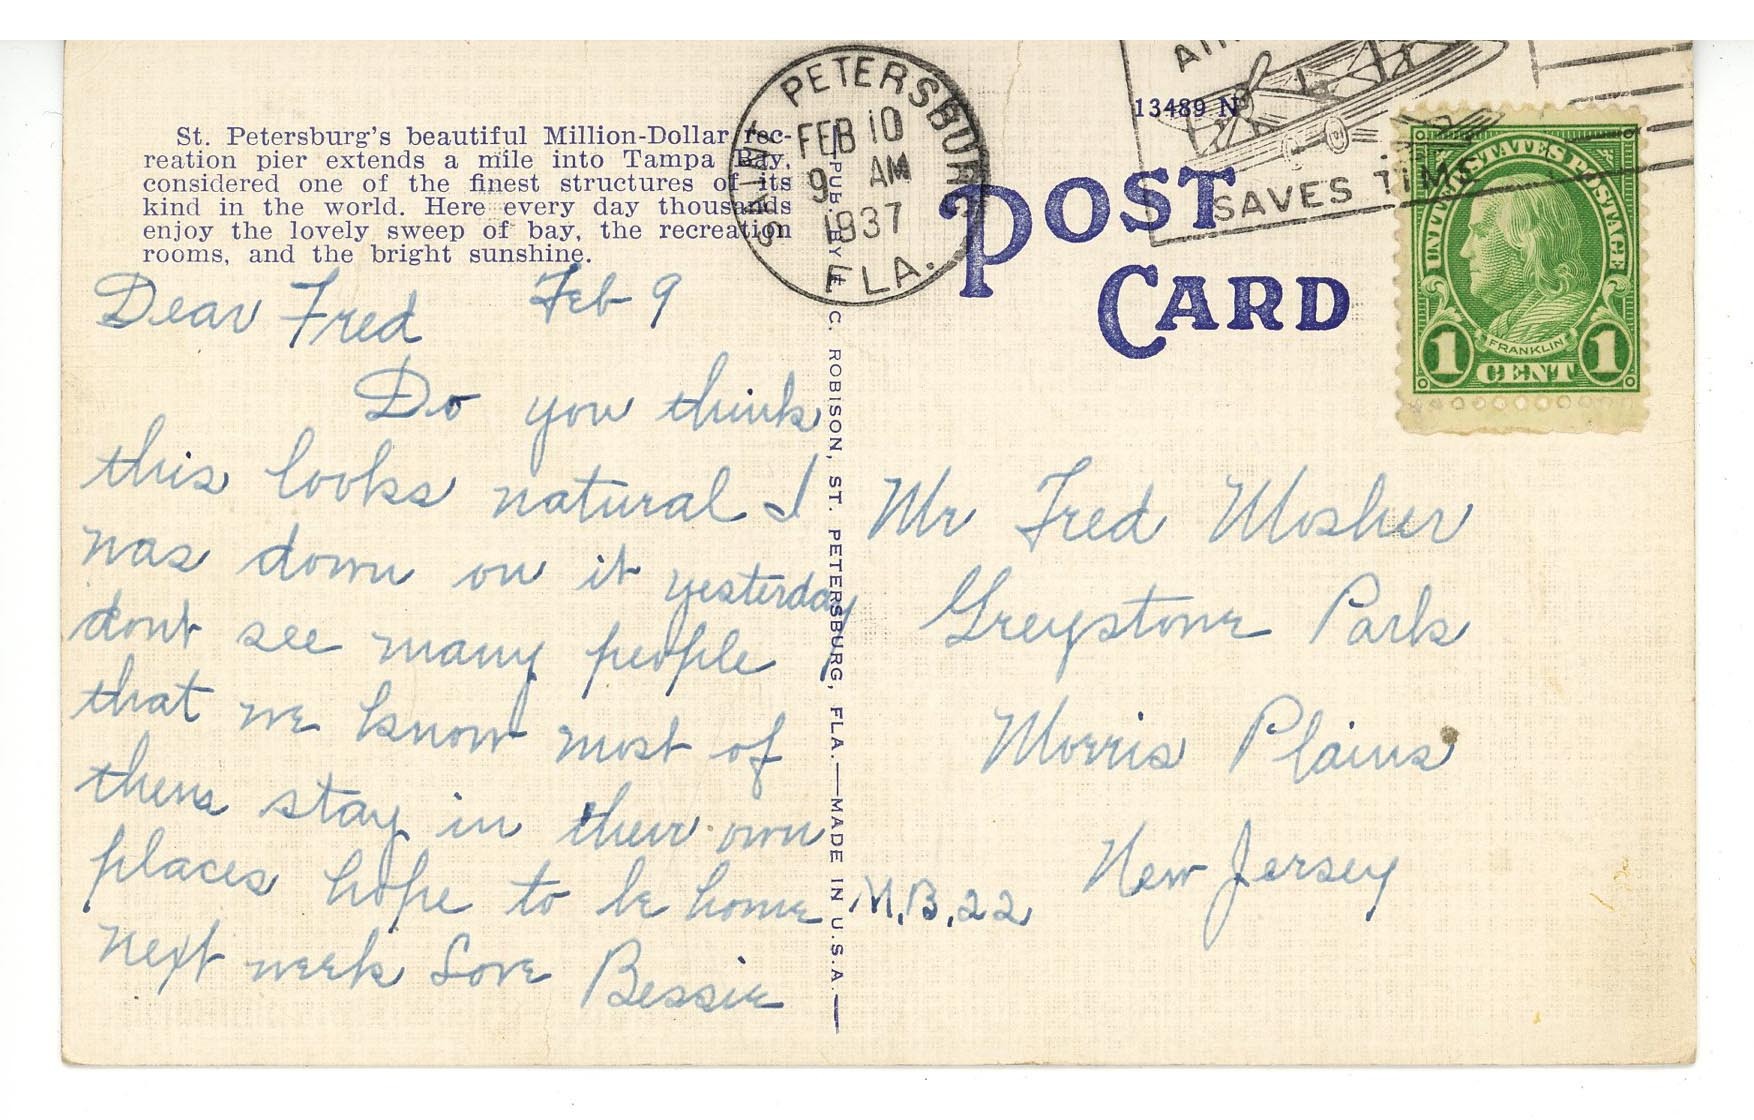 St. Petersburg's beautiful Million-Dollar rec-
reation pier extends a mile into Tampa Bay,
considered one of the finest structures of its
kind in the world. Here every day thousands
enjoy the lovely sweep of bay, the recreation
rooms, and the bright sunshine.
Dear Fred Feb 9
Do you think
this looks natural I
was down on it yesterday
dont see many people
that we know most of
them stay in their own
places hope to be home
next week Love Bessie
SAINT PETERSBURG
FEB 10
9 AM
1937
FLA.
PUB. BY C. ROBISON, ST. PETERSBURG, FLA.—MADE IN U.S.A.
13489 N
AIR
SAVES TIME
POST
CARD
UNITED STATES POSTAGE
FRANKLIN
1 CENT 1
Mr Fred Mosher
Greystone Park
Morris Plains
New Jersey
M.B.22